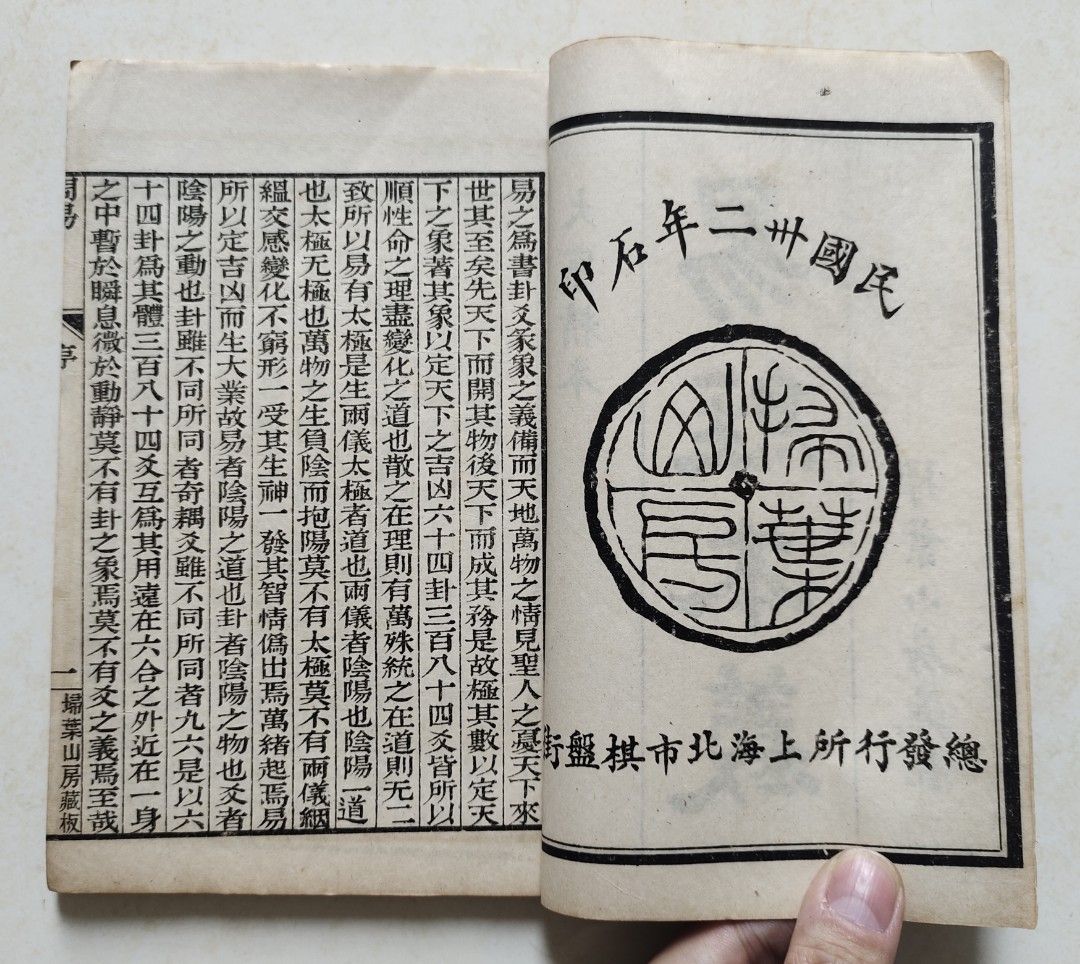 民國卅二年石印
掃葉
山房
總發行所上海北市棋盤街
易之爲書卦爻彖象之義備而天地萬物之情見聖人之憂天下來
世其至矣先天下而開其物後天下而成其務是故極其數以定天
下之象著其象以定天下之吉凶六十四卦三百八十四爻皆所以
順性命之理盡變化之道也散之在理則有萬殊統之在道則无二
致所以易有太極是生兩儀太極者道也兩儀者陰陽也陰陽一道
也太極无極也萬物之生負陰而抱陽莫不有太極莫不有兩儀絪
縕交感變化不窮形一受其生神一發其智情僞出焉萬緒起焉易
所以定吉凶而生大業故易者陰陽之道也卦者陰陽之物也爻者
陰陽之動也卦雖不同所同者奇耦爻雖不同所同者九六是以六
十四卦爲其體三百八十四爻互爲其用遠在六合之外近在一身
之中暫於瞬息微於動靜莫不有卦之象焉莫不有爻之義焉至哉
周易 序 一 埽葉山房藏板